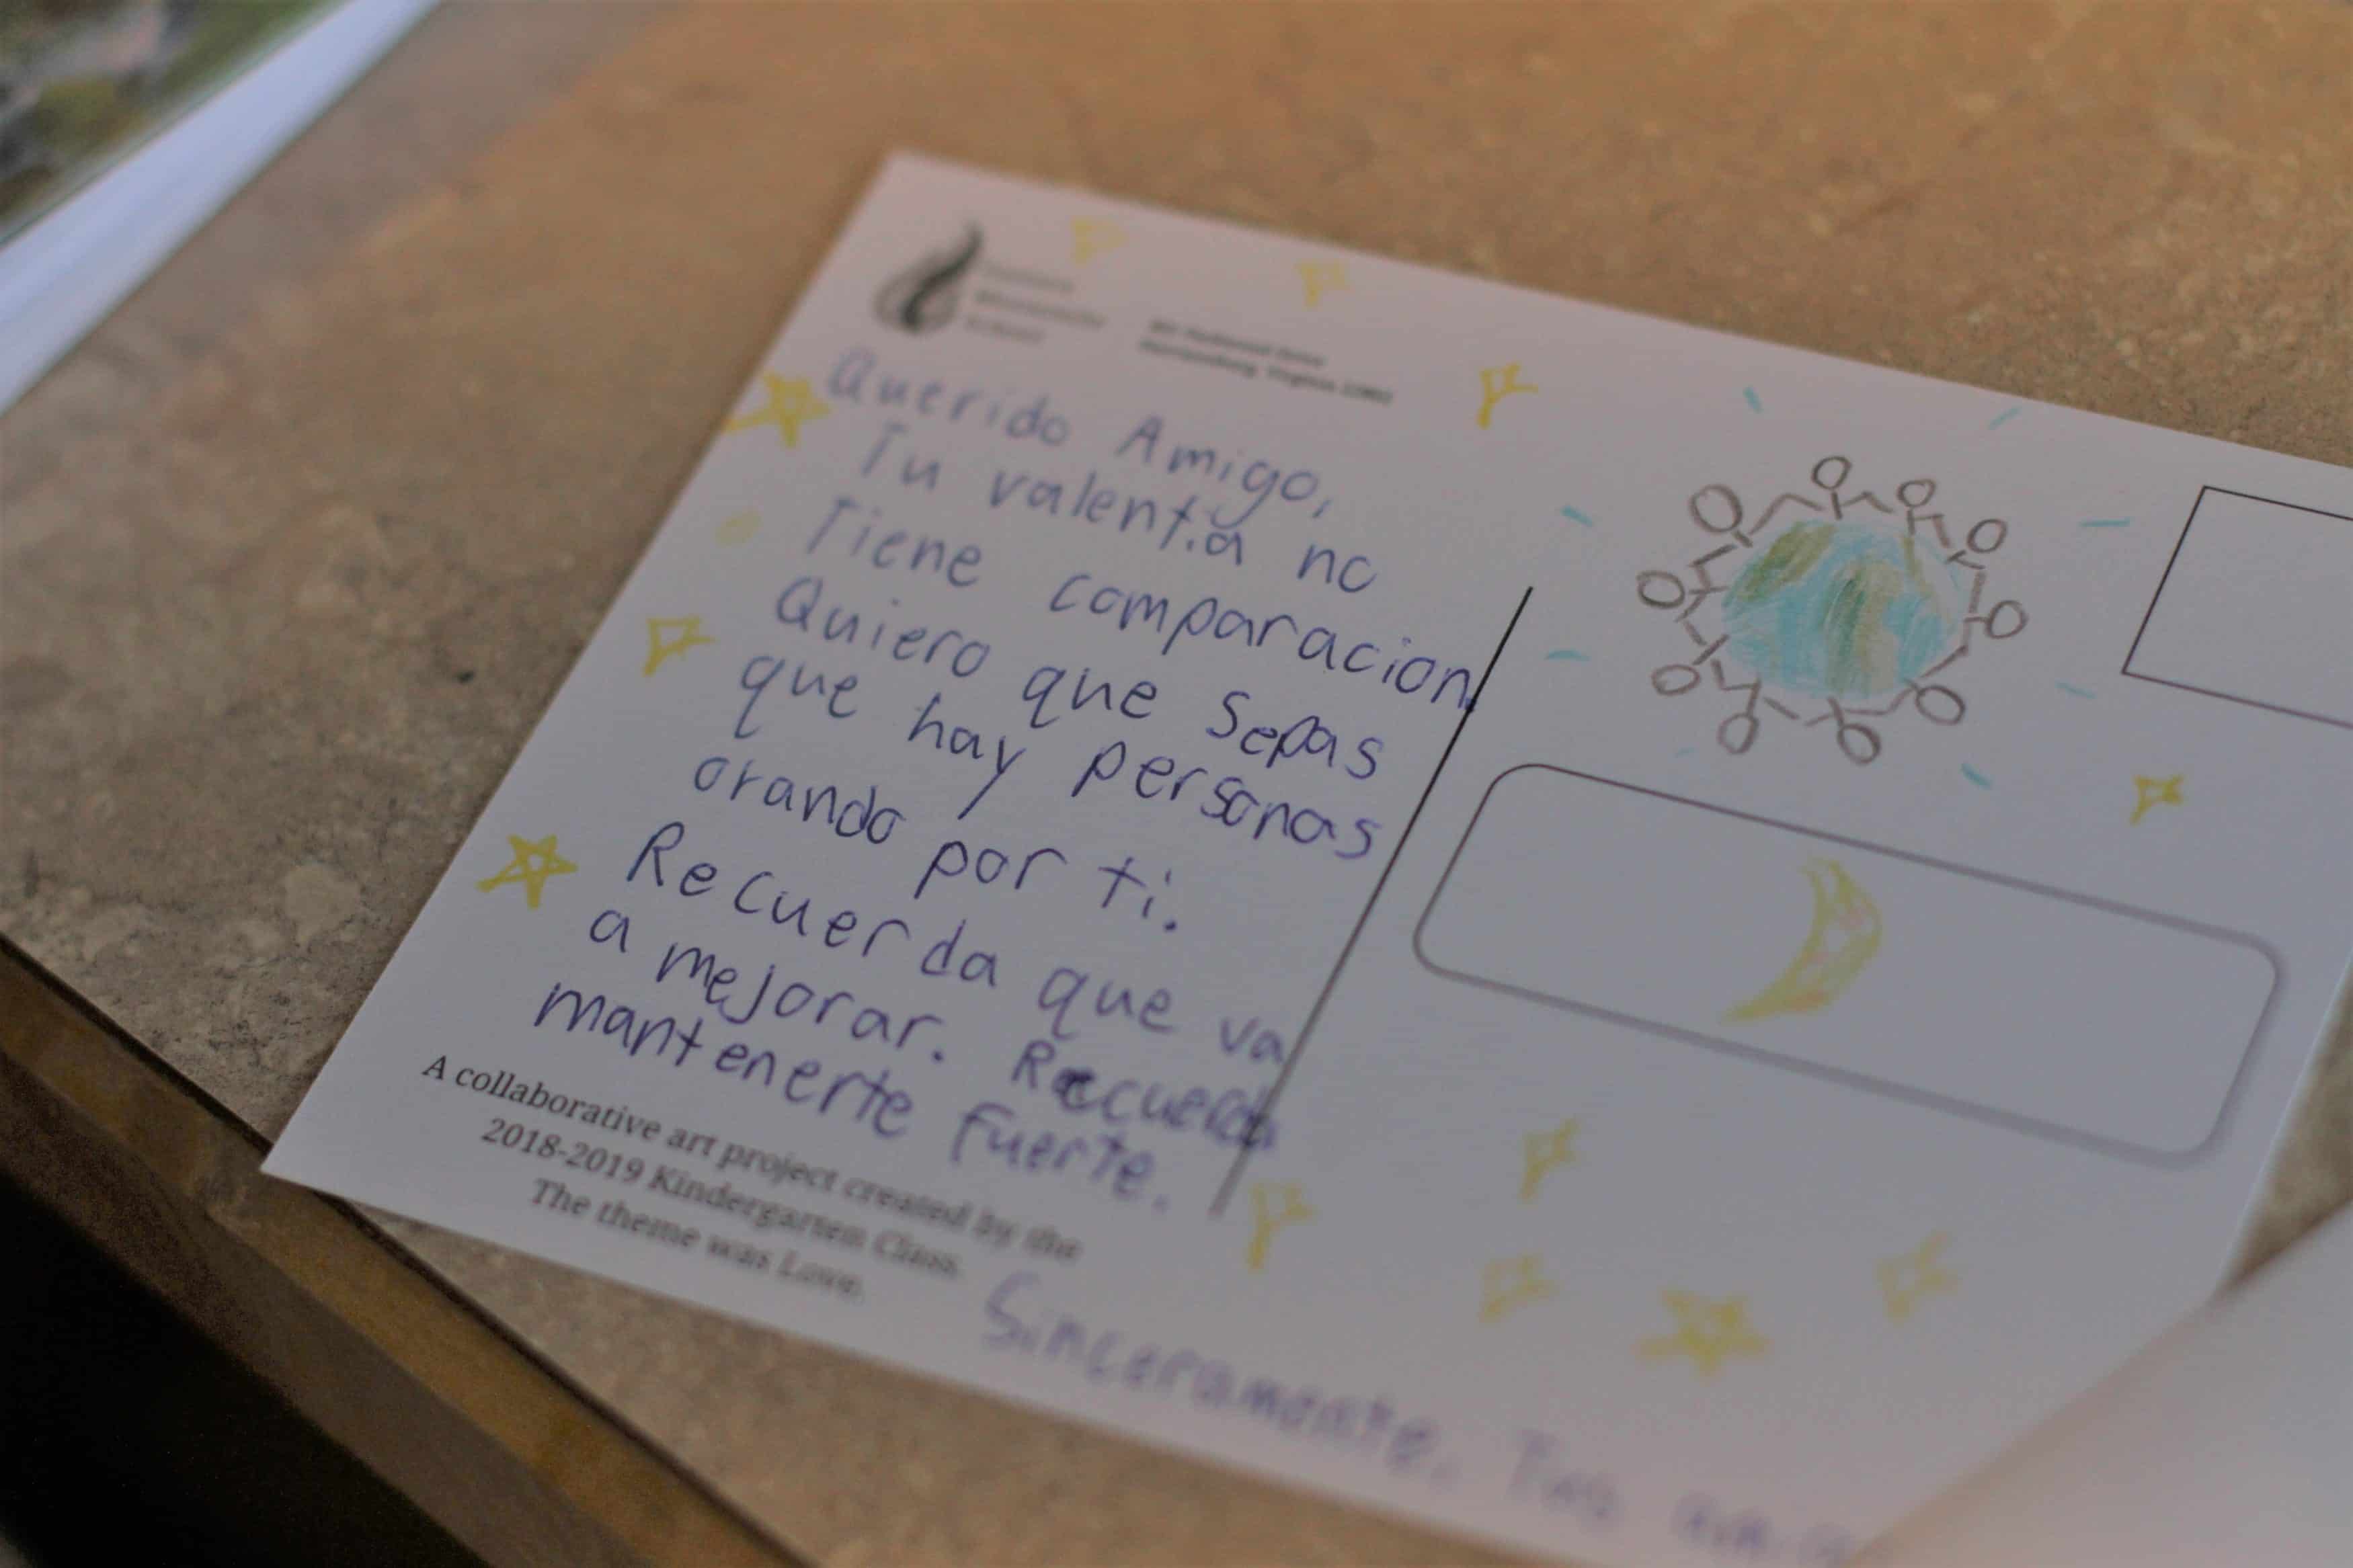 Querido Amigo,
Tu valentia no
Tiene comparacion.
Quiero que sepas
que hay personas
orando por ti.
Recuerda que va
a mejorar. Recuerda
mantenerte fuerte.
A collaborative art project created by the
2018-2019 Kindergarten Class.
The theme was Love.
Sinceramente, Tus